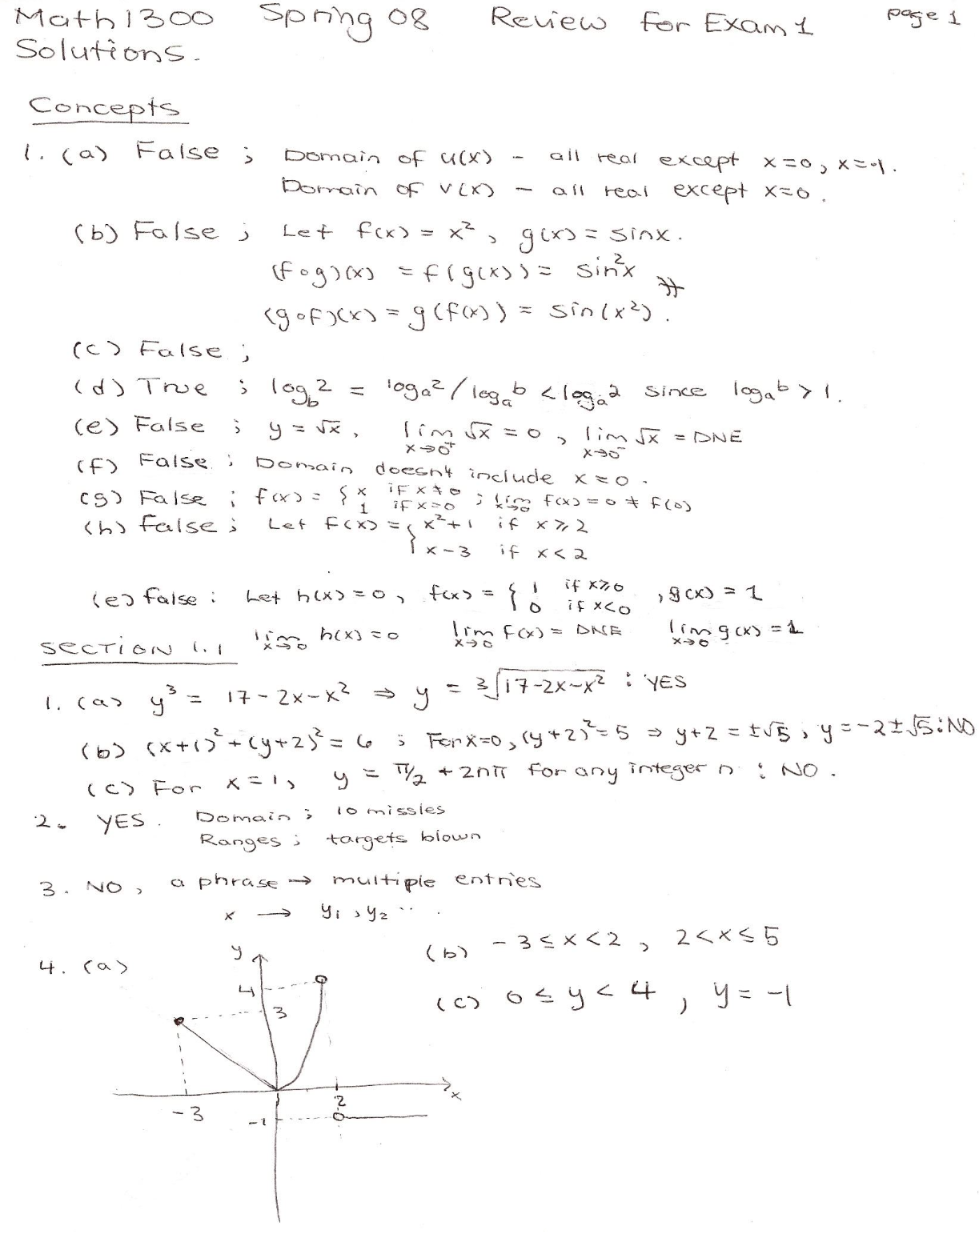 Math 1300 Spring 08 Review for Exam 1 page 1
Solutions.
Concepts
1. (a) False ; Domain of u(x) - all real except x=0, x=-1.
Domain of v(x) - all real except x=0.
(b) False ; Let f(x) = x², g(x) = sinx.
(f∘g)(x) = f(g(x)) = sin²x
≠
(g∘f)(x) = g(f(x)) = sin(x²).
(c) False ;
(d) True ; log_b 2 = log_a 2 / log_a b < log_a 2 since log_a b > 1.
(e) False ; y = √x, lim x→0⁺ √x = 0, lim x→0⁻ √x = DNE
(f) False ; Domain doesnt include x=0.
(g) False ; f(x) = { x if x≠0 ; lim x→0 f(x) = 0 ≠ f(0)
1 if x=0
(h) false ; Let f(x) = { x²+1 if x⩾2
x-3 if x<2
(e) false : Let h(x) = 0, f(x) = { 1 if x⩾0 , g(x) = 1
0 if x<0
lim x→0 h(x) = 0 lim x→0 f(x) = DNE lim x→0 g(x) = 1
SECTION 1.1
1. (a) y³ = 17-2x-x² ⇒ y = ³√17-2x-x² : YES
(b) (x+1)²+(y+2)² = 6 ; For x=0, (y+2)² = 5 ⇒ y+2 = ±√5, y = -2±√5 : NO
(c) For x=1, y = π/2 + 2nπ for any integer n : NO.
2. YES. Domain ; 10 missles
Ranges ; targets blown
3. NO, a phrase → multiple entries
x → y₁, y₂ ...
4. (a) y (b) -3 ≤ x < 2, 2 < x ≤ 5
4
(c) 0 ≤ y < 4, y = -1
3
x
-3 2
-1